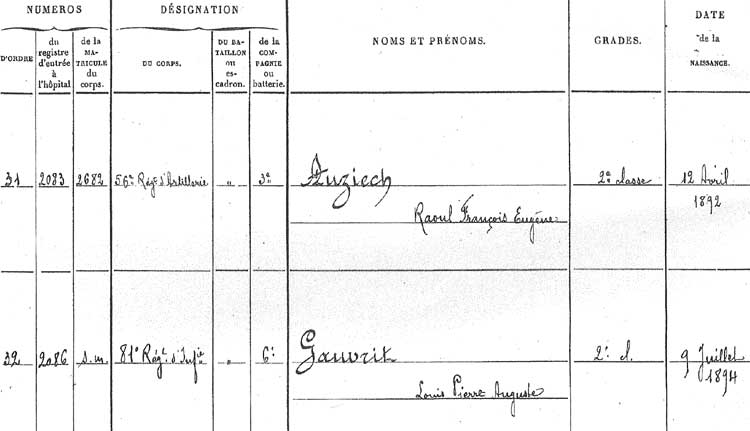 NUMEROS DÉSIGNATION DATE
D'ORDRE du registre d'entrée à l'hôpital de la MATRICULE du corps. DU CORPS. DU BATAILLON ou escadron. de la COMPAGNIE ou batterie. NOMS ET PRÉNOMS. GRADES. de la NAISSANCE.
31 2083 2682 56e Régt d'Artillerie " 3e Auziech 2e classe 12 Avril
Raoul François Eugène 1892
32 2086 s.m 81e Régt d'Infie " 6e Gauvrit 2e cl. 9 Juillet
Louis Pierre Auguste 1894